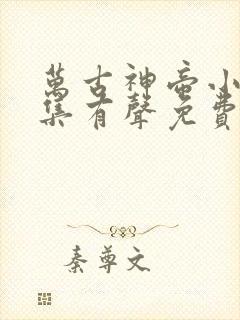 萬古神帝小
集有聲免費
秦尊文